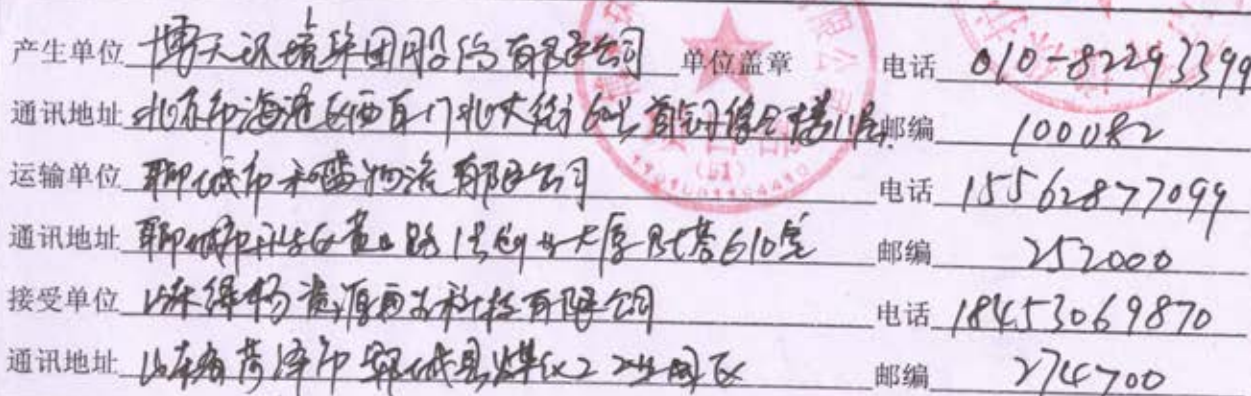 产生单位 博天环境集团股份有限公司 单位盖章 电话 010-82293399
通讯地址 北京市海淀区西直门北大街60号首钢综合楼11层 邮编 100082
运输单位 聊城市 物流有限公司 电话 15562877099
通讯地址 聊城市开发区黄山路1号创业大厦B塔610室 邮编 252000
接受单位 山东绿杨资源再生科技有限公司 电话 18453069870
通讯地址 山东省菏泽市郓城县煤化工工业园区 邮编 274700